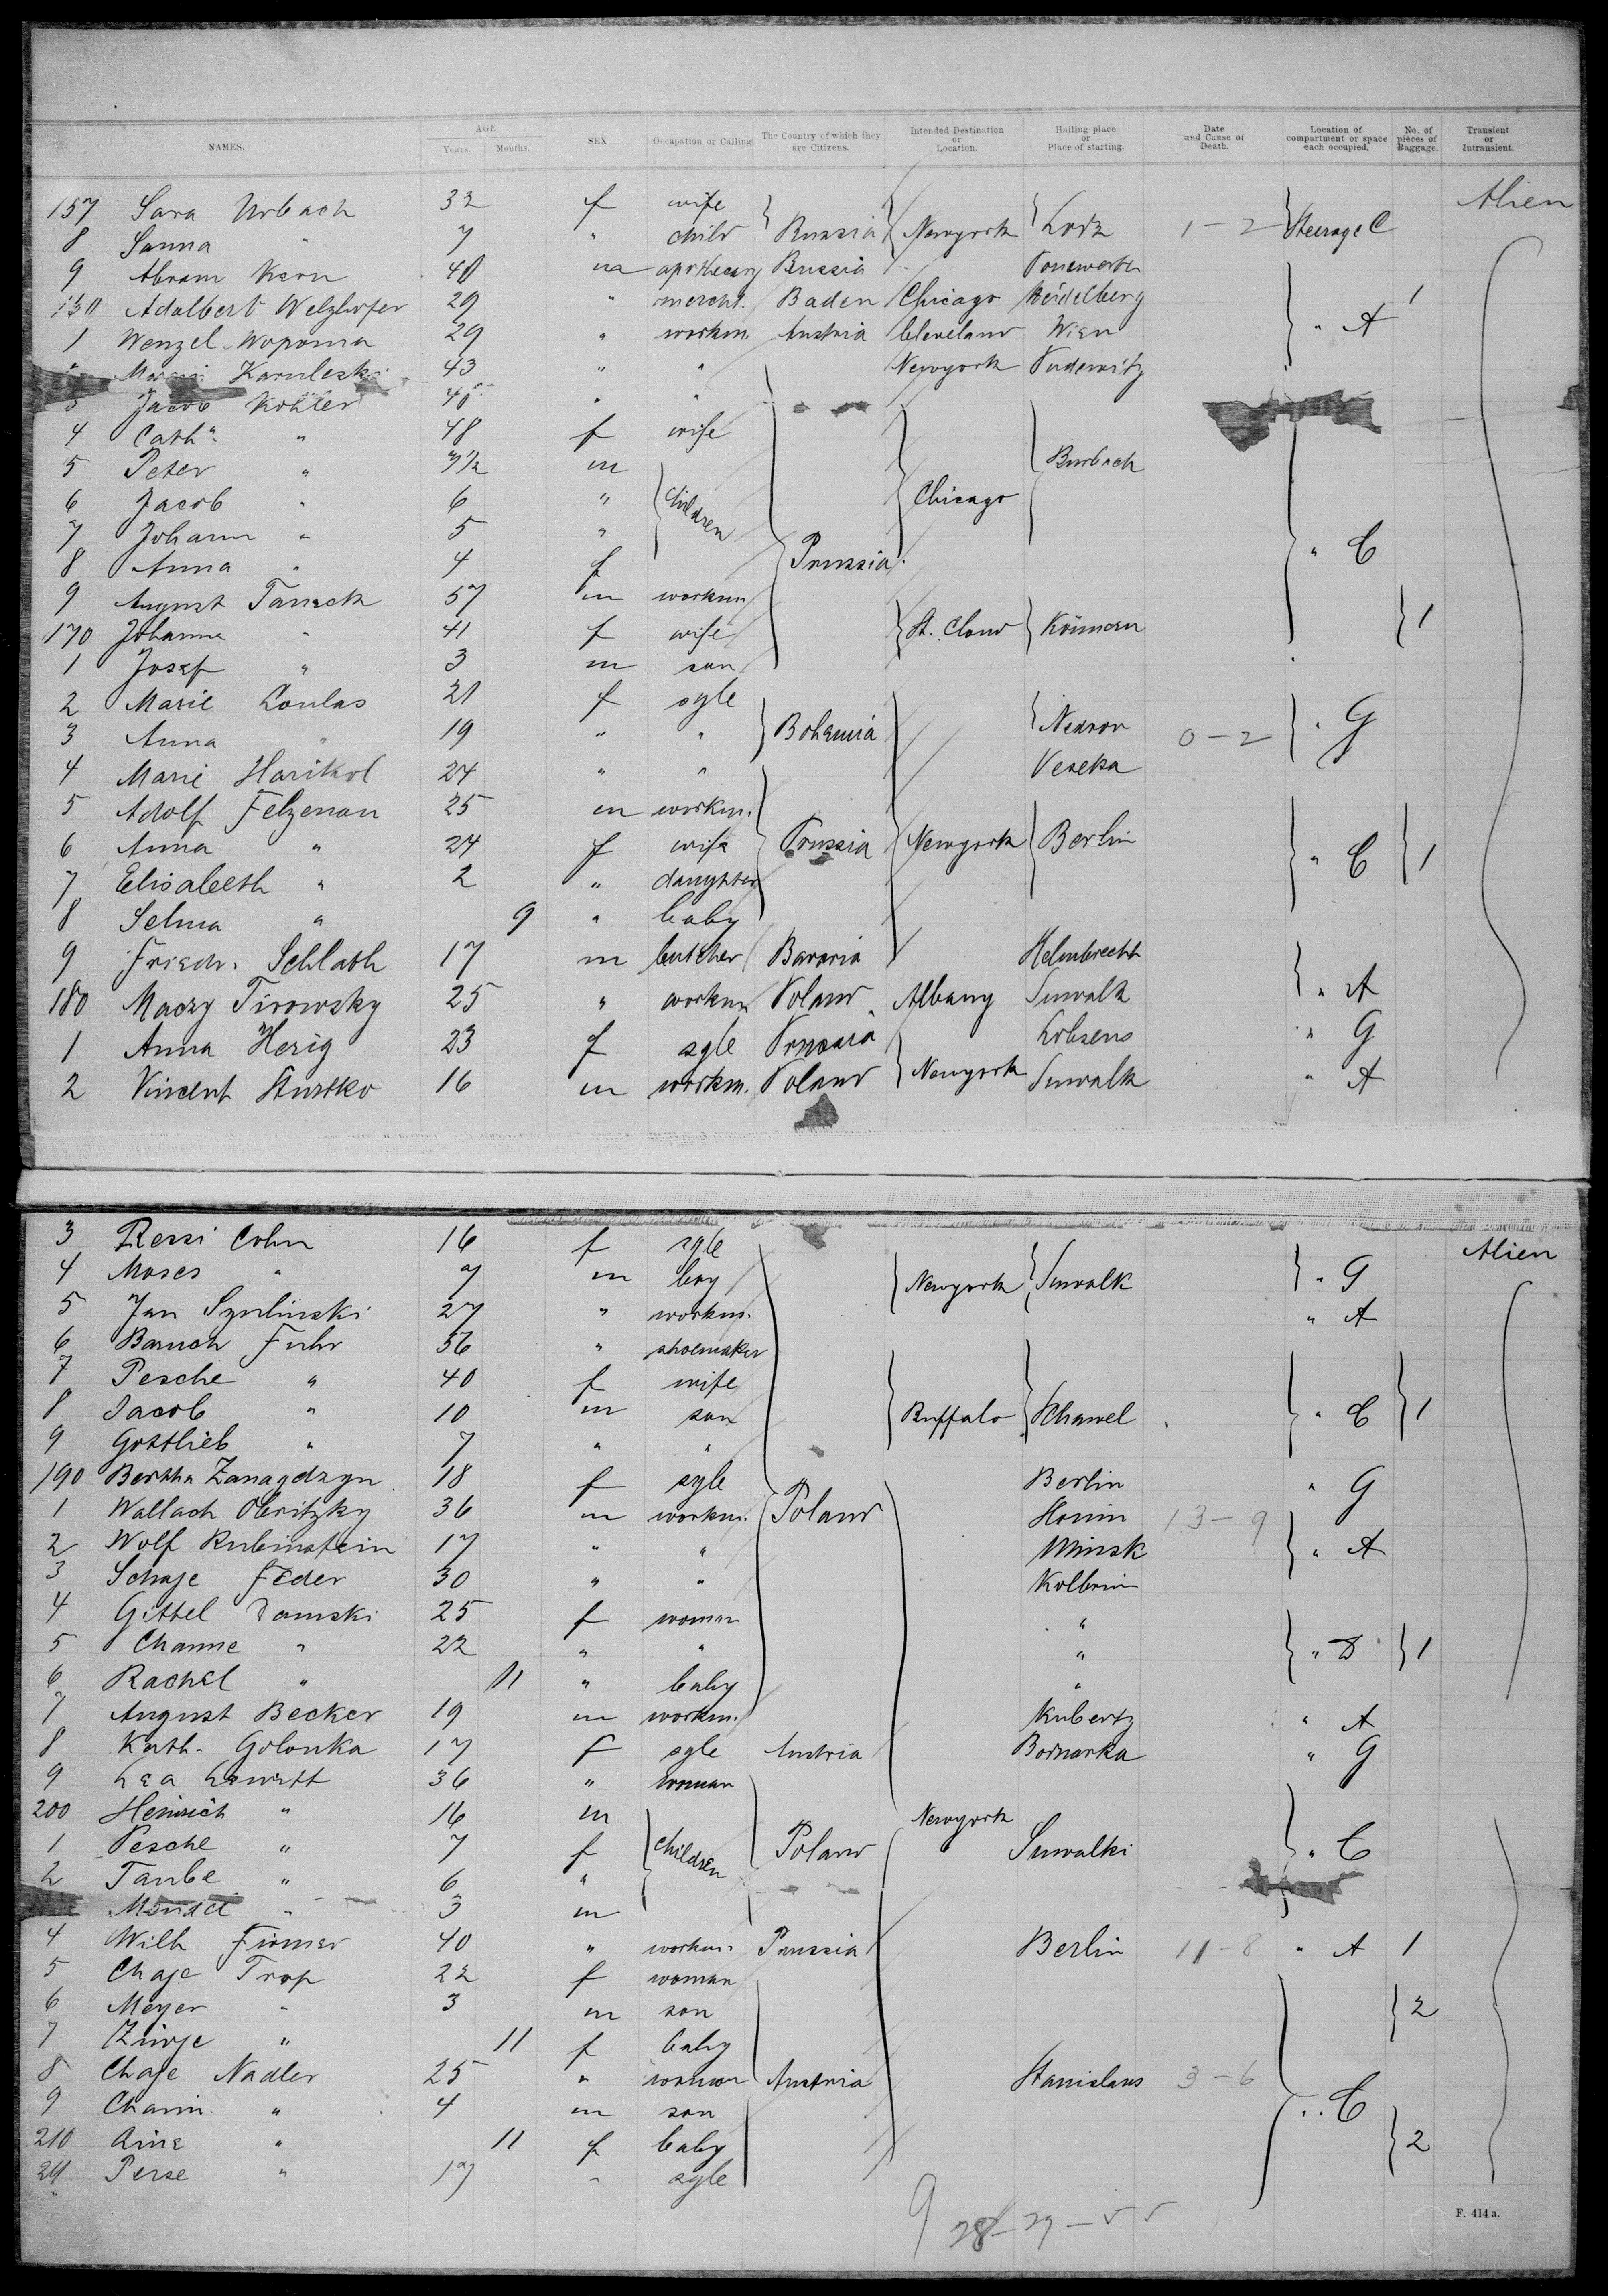 NAMES. AGE Years. Months. SEX Occupation or Calling The Country of which they are Citizens. Intended Destination or Location. Hailing place or Place of starting. Date and Cause of Death. Location of compartment or space each occupied. No. of pieces of Baggage. Transient or Intransient.
157 Sara Urbach 32 f wife Russia Newyork Lodz 1-2 Steerage C Alien
8 Sanna " 7 " child
9 Abram Kern 40 m apothecary Russia
Adalbert Welzhofer 29 " mercht. Baden Chicago Heidelberg 1
1 Wenzel Wopoma 29 " workm. Austria Cleveland Wien " A
Karuleski 43 " " Newyork Pudewitz
3 Jacob Köhler 45 " "
4 Cath. " 48 f wife
5 Peter " 7 1/2 m children Chicago Burbach
6 Jacob " 6 "
7 Johann " 5 "
8 Anna " 4 f Prussia " C
9 August Taneck 57 m workm
170 Johanna " 41 f wife St. Cloud 1
1 Josef " 3 m son
2 Marie Loulas 21 f sgle Bohemia " G
3 Anna " 19 " " 0-2
4 Marie Harikol 24 " " Veseka
5 Adolf Felzenau 25 m workm.
6 Anna " 24 f wife Prussia Newyork Berlin " C 1
7 Elisabeth " 2 " daughter
8 Selma " 9 " baby
9 Friedr. Schlath 17 m butcher Bavaria Helmbrecht
180 Maczy Tirowsky 25 " workm Poland Albany Suwalk " A
1 Anna Herig 23 f sgle Prussia Lobsens " G
2 Vincent 16 m workm. Poland Newyork Suwalk " A
3 Ressi Cohn 16 f sgle Alien
4 Moses " 7 m boy Newyork Suwalk " G
5 Jan Szulinski 27 " workm. " A
6 Baruch Fuhr 56 " shoemaker
7 Pesche " 40 f wife
8 Jacob " 10 m son Buffalo Schawel " C 1
9 Gottlieb " 7 " "
190 Bertha Zanagdzyn 18 f sgle Berlin " G
1 Wallach Obritzky 36 m workm. Poland 13-9
2 Wolf Rubinstein 17 " " Minsk " A
3 Schaje Feder 30 " " Kolbrin
4 Gittel Damski 25 f woman "
5 Channe " 22 " " " " D 1
6 Rachel " 11 " baby "
7 August Becker 19 m workm. Kubertz " A
8 Kath. Golonka 17 f sgle Austria Bodnarka " G
9 Lea Lewitt 36 " woman
200 Heinrich " 16 m children Newyork
1 Pesche " 7 f Poland Suwalki " C
2 Taube " 6 "
Mendel " 3 m
4 Wilh Firmer 40 " workm. Prussia Berlin 11-8 " A 1
5 Chaje Trop 22 f woman
6 Meyer " 3 m son 2
7 " 11 f baby
8 Chaje Nadler 25 " woman Austria Stanislaus 3-6
9 Chaim " 4 m son " C
210 " 11 f baby 2
211 Perse " 17 " sgle
F. 414 a.